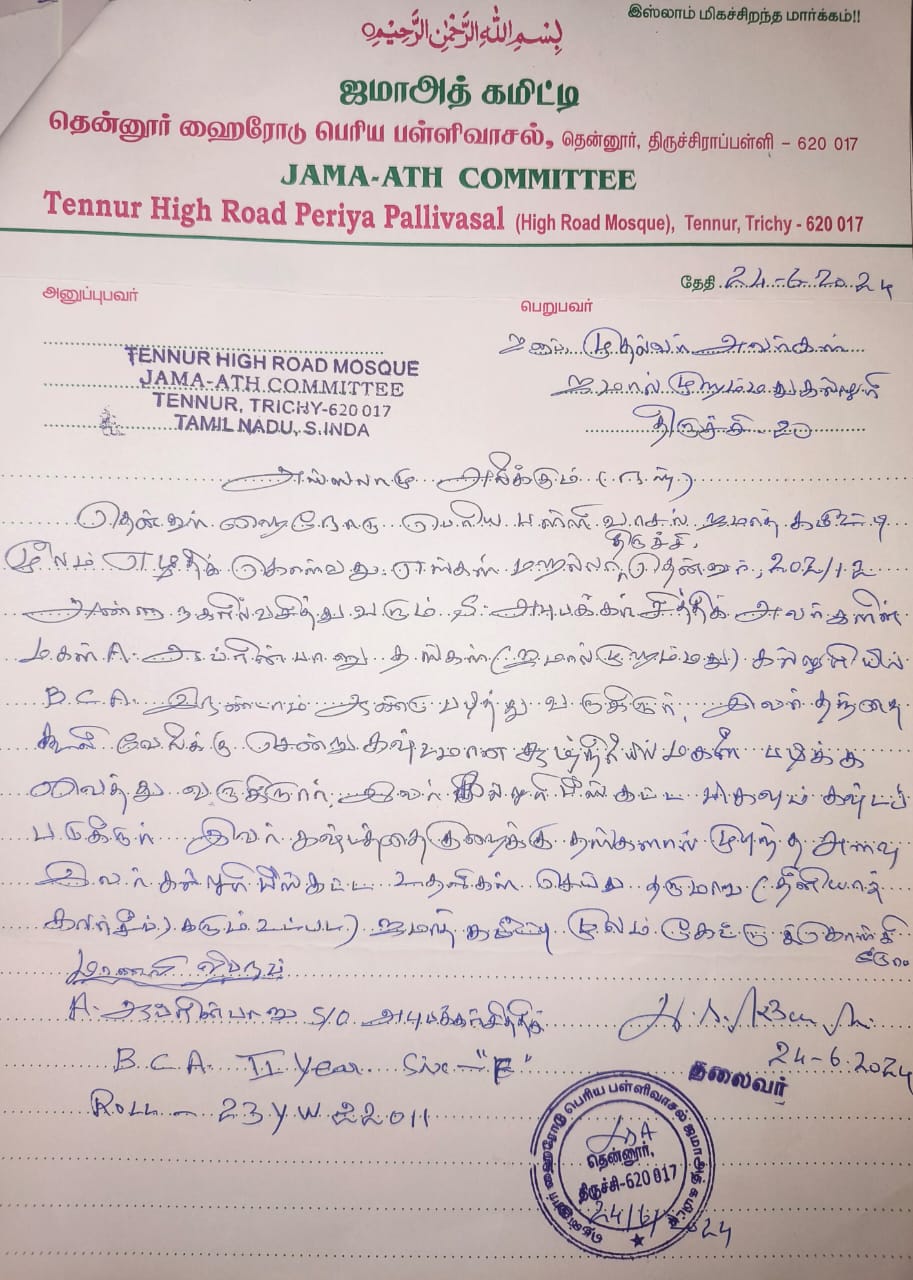 இஸ்லாம் மிகச்சிறந்த மார்க்கம்!!
بِسْمِ اللهِ الرَّحْمٰنِ الرَّحِيْمِ
ஜமாஅத் கமிட்டி
தென்னூர் ஹைரோடு பெரிய பள்ளிவாசல், தென்னூர், திருச்சிராப்பள்ளி – 620 017
JAMA-ATH COMMITTEE
Tennur High Road Periya Pallivasal (High Road Mosque), Tennur, Trichy - 620 017
தேதி 24-6-2024
அனுப்புபவர்
பெறுபவர்
TENNUR HIGH ROAD MOSQUE
JAMA-ATH COMMITTEE
TENNUR, TRICHY-620 017
TAMIL NADU, S.INDA
முதல்வர் அவர்கள்
ஜமால் முஹம்மது கல்லூரி
திருச்சி - 20
அஸ்ஸலாமு அலைக்கும்
தென்னூர் ஹைரோடு பெரிய பள்ளி வாசல் ஜமாத் கமிட்டி
மூலம் எழுதிக் கொள்வது எங்கள் மஹல்லா திருச்சி, தென்னூர், 202/12
அண்ணா நகரில் வசித்து வரும் அபுபக்கர் சித்திக் அவர்களின்
மகள் A. அப்ரின் பானு தங்கள் (ஜமால் முஹம்மது) கல்லூரியில்
B.C.A. இரண்டாம் ஆண்டு படித்து வருகிறார், இவர் தந்தை
கூலி வேலைக்கு சென்று கஷ்டமான சூழ்நிலையில் மகளை படிக்க
வைத்து வருகிறார், இவர் கல்லூரி பீஸ் கட்ட மிகவும் கஷ்டப்
படுகிறார் இவர் கஷ்டத்தை குறைக்கு தங்களால் முடிந்த அளவு
இவர் கல்லூரி பீஸ் கட்ட உதவிகள் செய்து தருமாறு
ஜமாத் கமிட்டி மூலம் கேட்டு கொள்கி
றோம்
மாணவி விபரம்
A. அப்ரின் பானு S/O அபுபக்கர் சித்திக்
B.C.A. II Year Sec - "E"
Roll - 23YW22011
24-6-2024
தலைவர்
தென்னூர் ஹைரோடு பெரிய பள்ளிவாசல் ஜமாஅத் கமிட்டி
தென்னூர்,
திருச்சி-620 017
24/6/2024